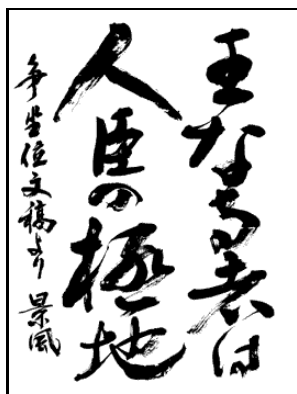 王なる者は
人臣の極地
争坐位文稿より 景風